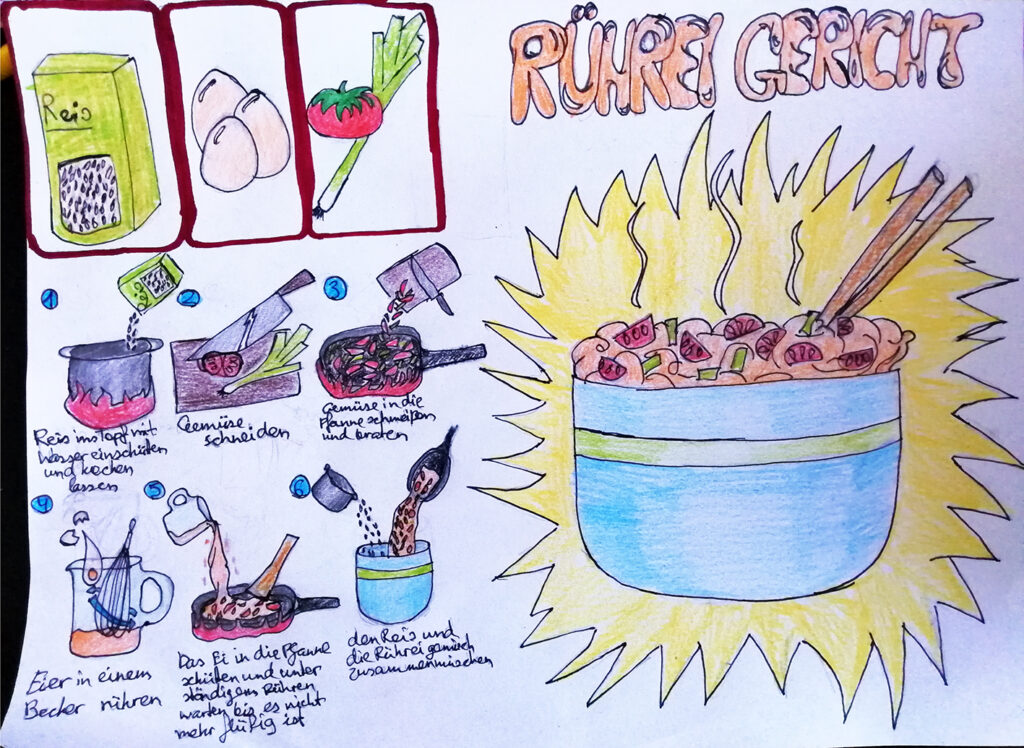 RÜHREI GERICHT
Reis
1
Reis
2
3
Reis ins Topf mit
Wasser einschütten
und kochen
lassen
Gemüse
schneiden
Gemüse in die
Pfanne schmeißen
und braten
4
5
6
Eier in einem
Becher rühren
Das Ei in die Pfanne
schütten und unter
ständigem Rühren
warten bis es nicht
mehr flüßig ist
den Reis und
die Rührei gemisch
zusammenmischen